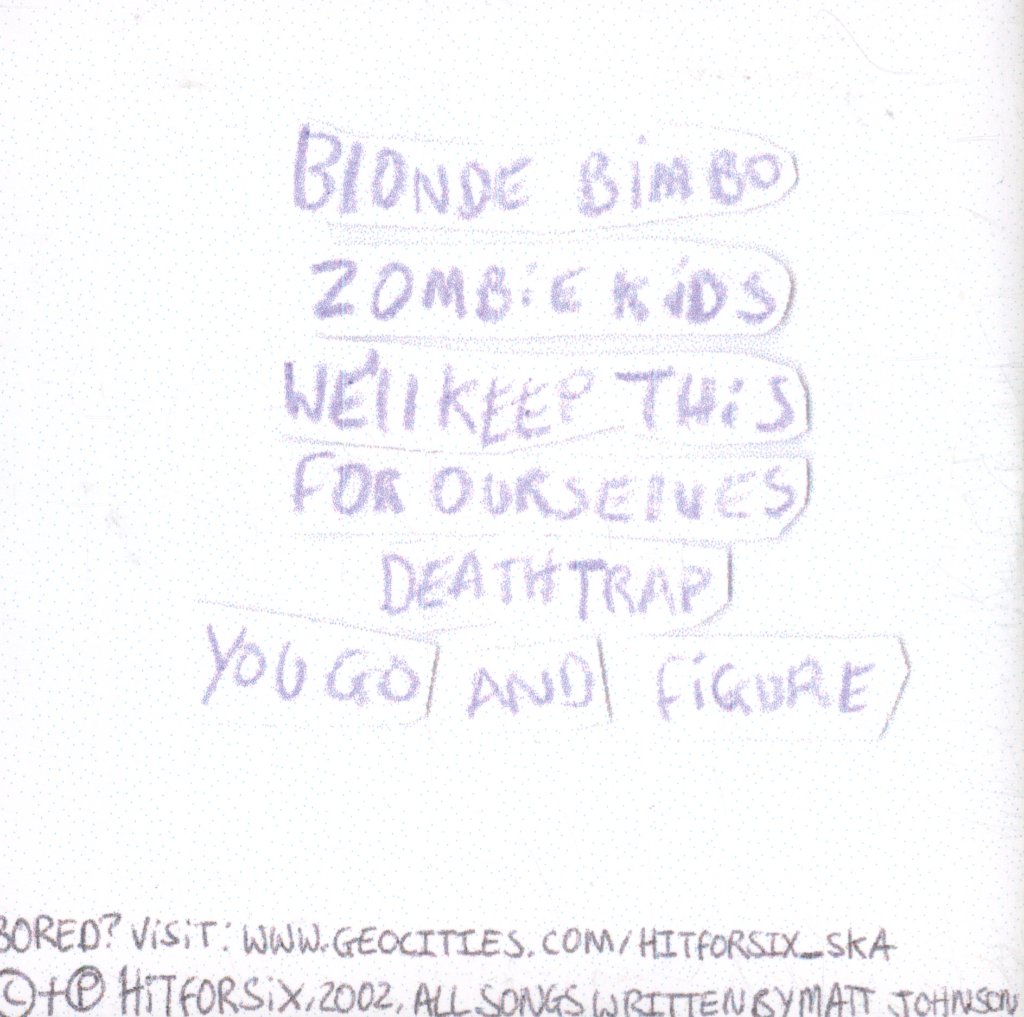 BlONDE BiMBO
ZOMBiE KiDS
WE'll KEEP THiS
FOR OURSElVES
DEATHTRAP
YOU GO AND FiGURE
BORED? ViSiT: WWW.GEOCITIES.COM/HITFORSIX_SKA
©+℗ HiTFORSiX, 2002, ALL SONGS WRITTEN BY MATT JOHNSON